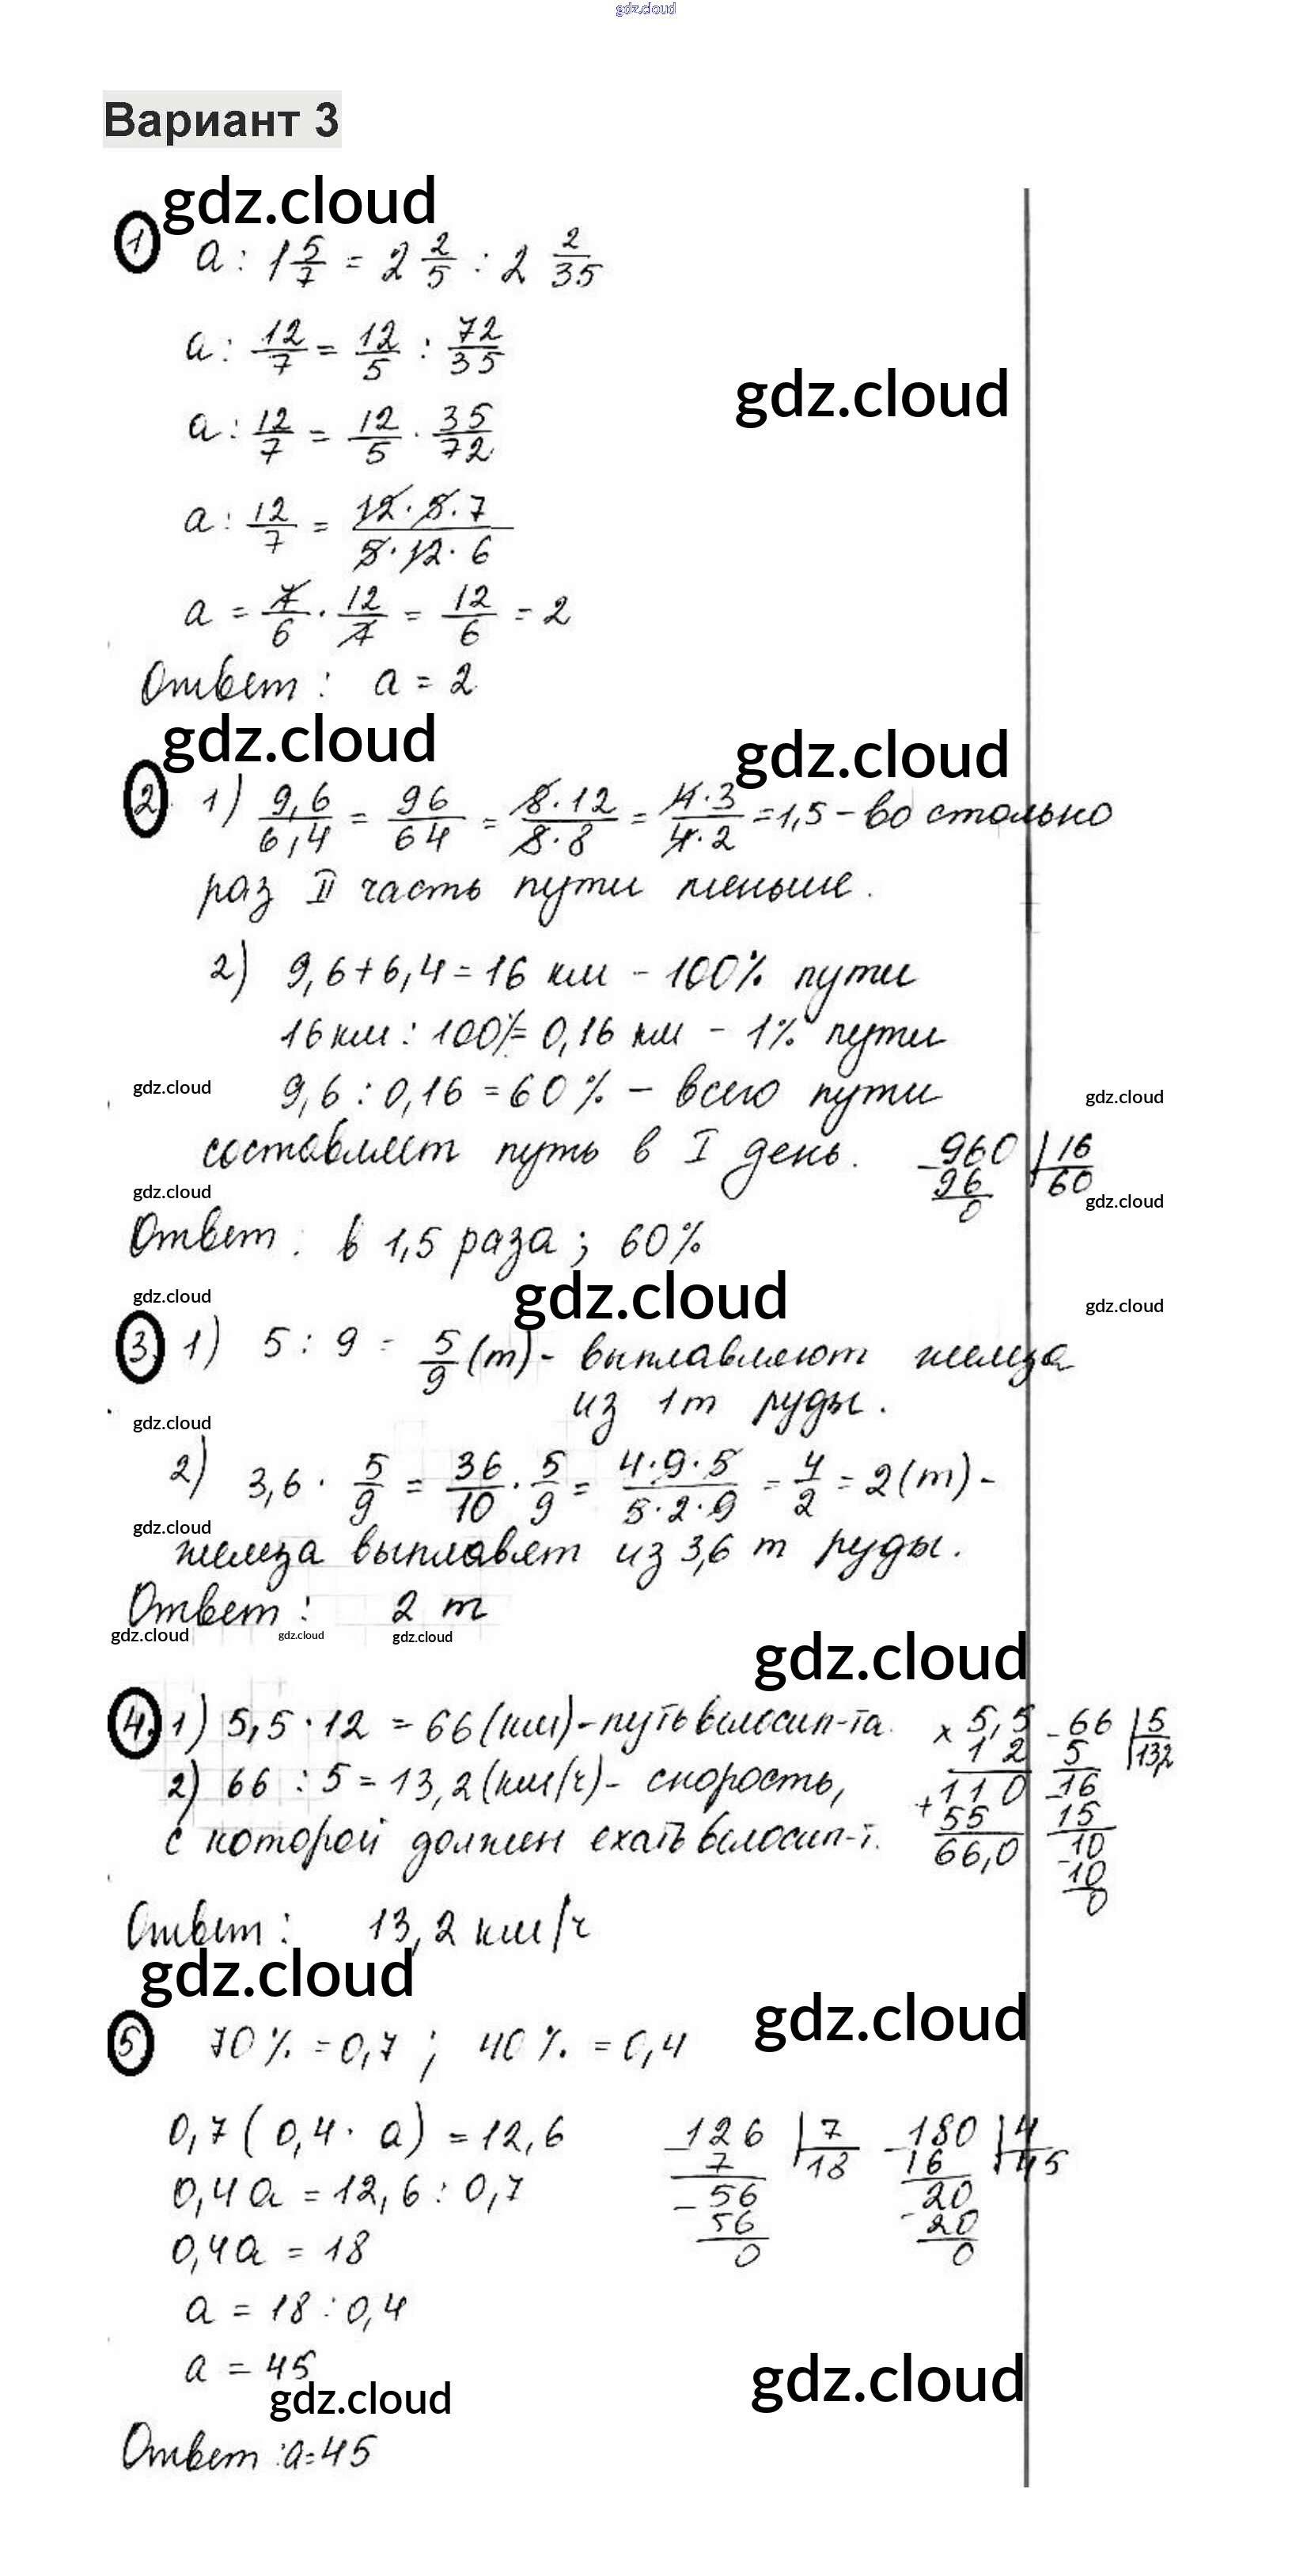 gdz.cloud
Вариант 3
gdz.cloud
1 a : 1 5/7 = 2 2/5 : 2 2/35
a : 12/7 = 12/5 : 72/35
gdz.cloud
a : 12/7 = 12/5 · 35/72
a : 12/7 = 12·5·7/5·12·6
a = 7/6 · 12/7 = 12/6 = 2
Ответ: a = 2
gdz.cloud gdz.cloud
2. 1) 9,6/6,4 = 96/64 = 8·12/8·8 = 4·3/4·2 = 1,5 – во столько
раз II часть пути меньше.
2) 9,6+6,4 = 16 км – 100% пути
16км : 100% = 0,16 км – 1% пути
gdz.cloud 9,6 : 0,16 = 60% – всего пути gdz.cloud
составляет путь в I день. –960 |16
96 60
0
gdz.cloud gdz.cloud
Ответ: в 1,5 раза; 60%
gdz.cloud gdz.cloud gdz.cloud
3. 1) 5 : 9 = 5/9 (т) – выплавляют железа
из 1т руды.
gdz.cloud
2) 3,6 · 5/9 = 36/10 · 5/9 = 4·9·5/5·2·9 = 4/2 = 2(т) –
gdz.cloud
железа выплавят из 3,6 т руды.
Ответ: 2 т
gdz.cloud gdz.cloud gdz.cloud
gdz.cloud
4. 1) 5,5 · 12 = 66 (км) – путь велосип-та. × 5,5 – 66 |5
12 5 13,2
2) 66 : 5 = 13,2 (км/ч) – скорость, + 110 –16
55 15
с которой должен ехать велосип-т. 66,0 –10
10
0
Ответ: 13,2 км/ч
gdz.cloud
gdz.cloud
5 70% = 0,7 ; 40% = 0,4
0,7 (0,4 · a) = 12,6 –126 |7 –180 |4
7 18 16 45
0,4a = 12,6 : 0,7 –56 –20
56 20
0,4a = 18 0 0
a = 18 : 0,4
a = 45
gdz.cloud gdz.cloud
Ответ: a=45